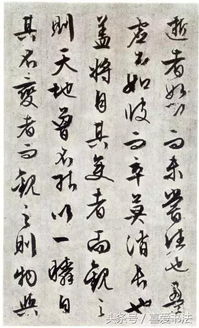 逝者如斯而未嘗往也盈
虛者如彼而卒莫消長也
蓋將自其變者而觀之
則天地曾不能以一瞬自
其不變者而觀之則物與
头条号/喜爱书法